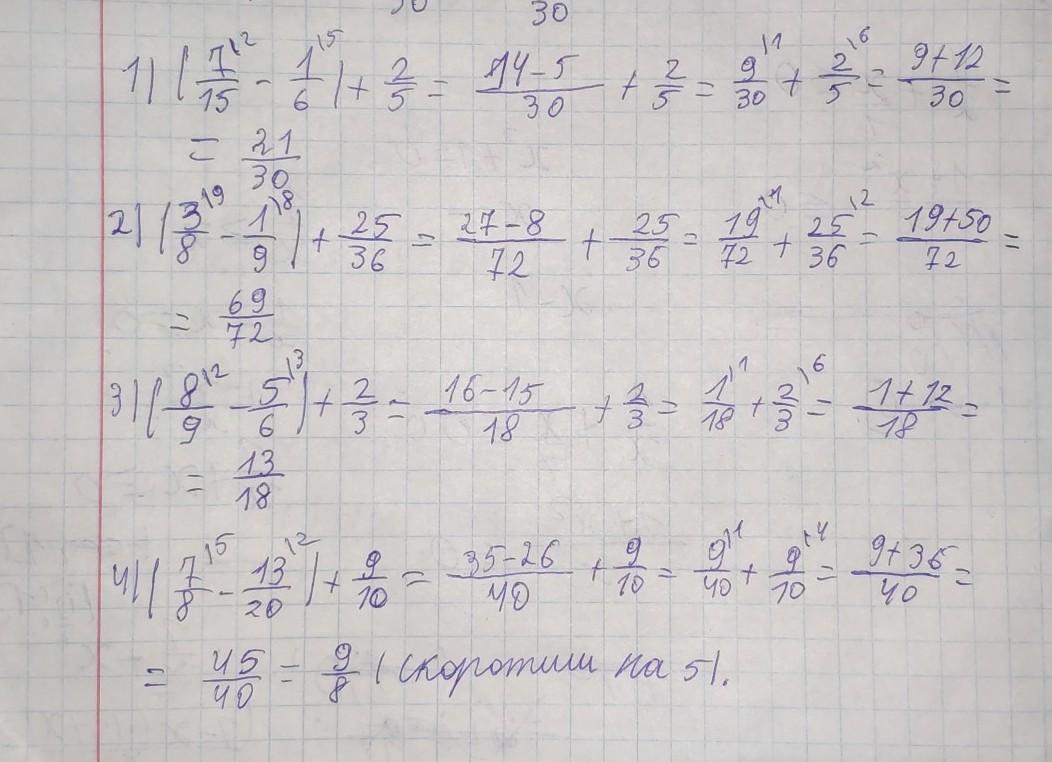 30
1) (7/15\2 - 1/6\5) + 2/5 = 14-5/30 + 2/5 = 9/30\1 + 2/5\6 = 9+12/30 =
= 21/30
2) (3/8\9 - 1/9\8) + 25/36 = 27-8/72 + 25/36 = 19/72\1 + 25/36\2 = 19+50/72 =
= 69/72
3) (8/9\2 - 5/6\3) + 2/3 = 16-15/18 + 2/3 = 1/18\1 + 2/3\6 = 1+12/18 =
= 13/18
4) (7/8\5 - 13/20\2) + 9/10 = 35-26/40 + 9/10 = 9/40\1 + 9/10\4 = 9+36/40 =
= 45/40 = 9/8 (скоротили на 5).